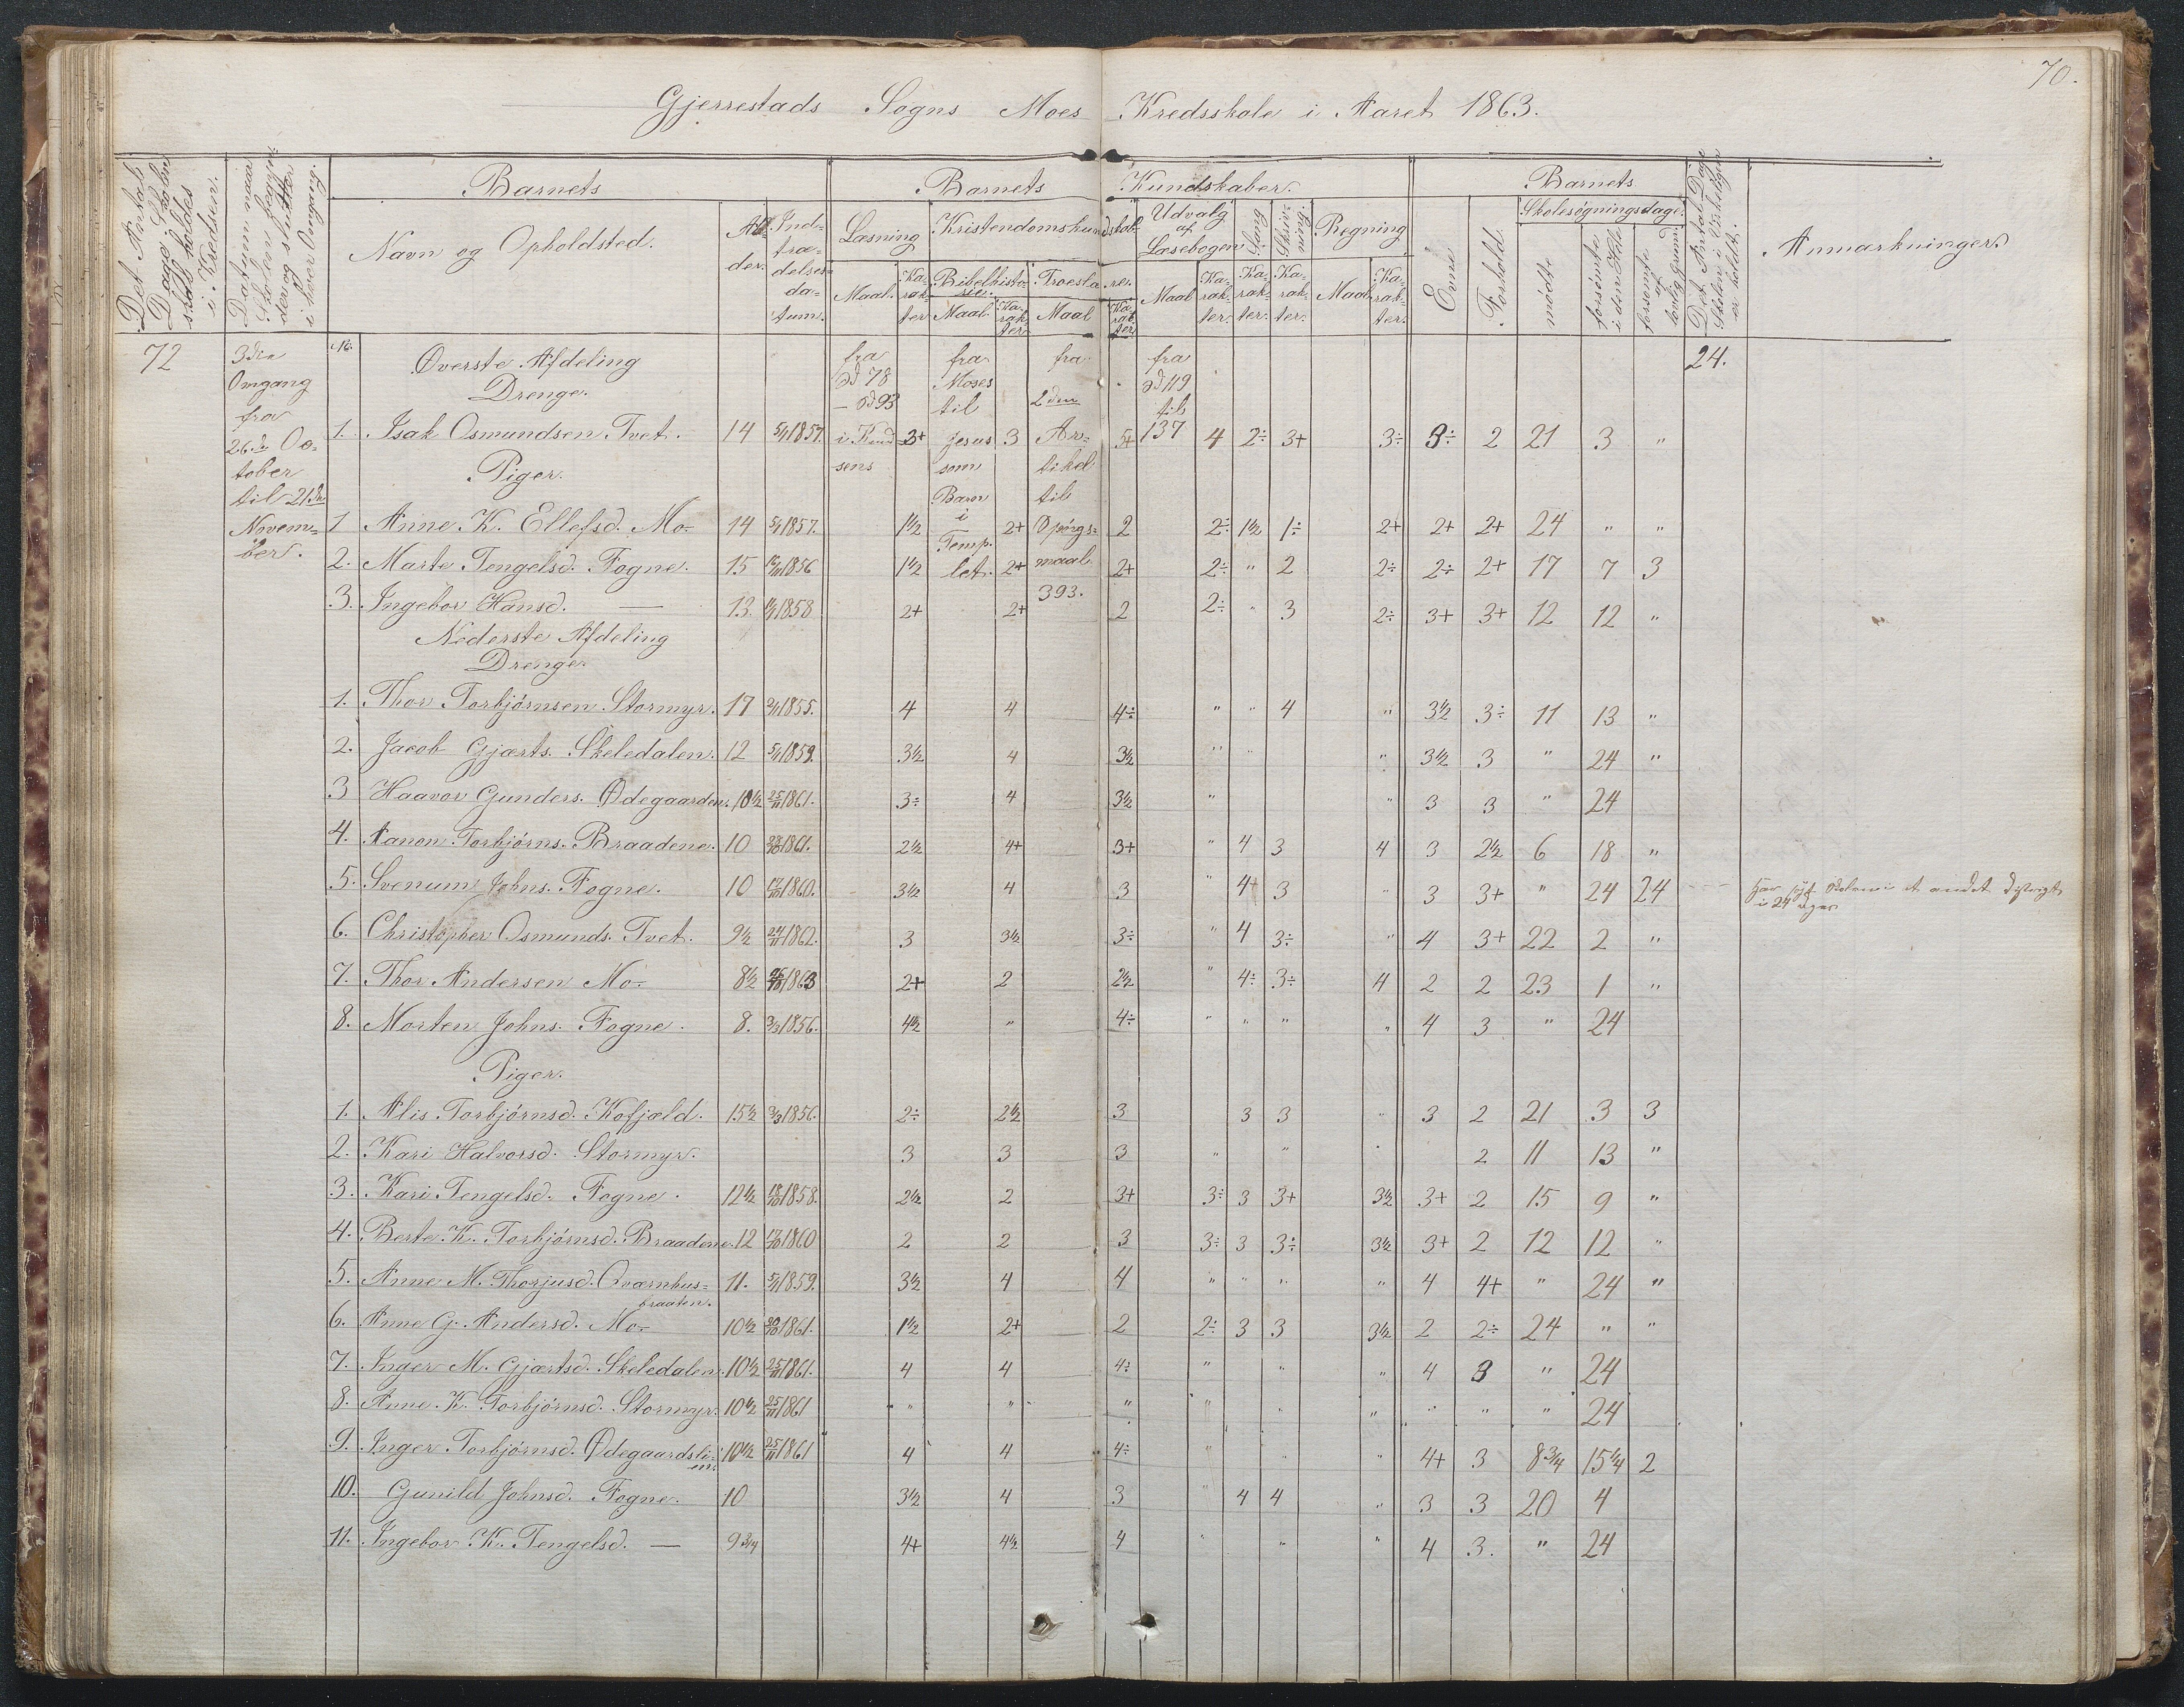 70.
Gjerrestads Sogns Moes Kredsskole i Aaret 1863.
Det Antal Dage Skolen skal holdes i Kredsen.
Datum naar Skolen begynder og slutter i hver Omgang.
Barnets
Navn og Opholdsted.
Alder.
Indtrædelsesdatum.
Barnets Kundskaber.
Læsning
Maal. Karakter
Kristendomskundskab
Bibelhistorie. Maal. Karakter.
Troeslære. Maal Karakter
Udvalg af Læsebogen Maal Karakter.
Sang Karakter.
Skrivning. Karakter.
Regning Maal Karakter.
Barnets
Evne
Forhold.
Skolesøgningsdage.
mødte
forsømte i den Hele
forsømte af lovlig grund.
Det Antal Dage Skolen i Virkeligen er holdt.
Anmærkninger.
72
3die
Omgang
fra
26de Oc-
tober
til 21de
Novem-
ber.
No.
Øverste Afdeling
Drenge.
fra
Sd 78
— Sd 93
i Knud-
sens
fra
Moses
til
Jesus
som
Barn
i
Temp-
let.
fra
2den
Ar-
tikel
til
Spørgs-
maal
393.
fra
Sd 119
til
137
24.
1. Isak Osmundsen Tvet. 14 5/11 1857. 3+ 3 5+ 4 2÷ 3+ 3÷ 3÷ 2 21 3 "
Piger.
1 Anne K. Ellefsd. Mo- 14 5/11 1857. 1½ 2+ 2 2÷ 1½ 1÷ 2+ 2+ 2+ 24 " "
2. Marte Tengelsd. Fogne. 15 1856 1½ 2+ 2+ 2÷ " 2 2÷ 2÷ 2+ 17 7 3
3. Ingebor Hansd. — 13 1858 2+ 2+ 2 2÷ " 3 2÷ 3+ 3+ 12 12 "
Nederste Afdeling
Drenge.
1. Thor Torbjørnsen Stormyr. 17 1855. 4 4 4÷ " " 4 " 3½ 3÷ 11 13 "
2. Jacob Gjærts. Skeledalen. 12 5/11 1859. 3½ 4 3½ " " " 3½ 3 " 24 "
3 Haavor Gunders. Ødegaarden. 10½ 25/11 1861. 3÷ 4 3½ " " 3 3 " 24
4. Aanon Torbjørns. Braadene. 10 1861. 2½ 4+ 3+ " 4 3 4 3 2½ 6 18 "
5. Svenum Johns. Fogne. 10 17/10 1860. 3½ 4 3 " 4+ 3 " 3 3+ " 24 24 Har søgt Skolen i et andet Distrigt
i 24 Dage
6. Christopher Osmunds. Tvet. 9½ 24/11 1862. 3 3½ 3÷ " 4 3÷ " 4 3+ 22 2 "
7. Thor Andersen Mo- 8½ 26/10 1863 2+ 2 2½ " 4÷ 3÷ 4 2 2 23 1 "
8. Morten Johns. Fogne. 8. 1856. 4½ " 4÷ " " " " 4 3 " 24
Piger.
1. Alis Torbjørnsd. Kofjæld. 15½ 1856. 2÷ 2½ 3 3 3 " 3 2 21 3 3
2. Kari Halvorsd. Stormyr. 3 3 3 " " 2 11 13 "
3. Kari Tengelsd. Fogne. 12½ 18/10 1858. 2½ 2 3+ 3÷ 3 3+ 3½ 3+ 2 15 9 "
4. Berte K. Torbjørnsd. Braadene. 12 17/10 1860 2 2 3 3÷ 3 3÷ 3½ 3+ 2 12 12 "
5. Anne M. Thorjusd. Qværnhus- 11. 5/11 1859. 3½ 4 4 " " " " 4 4+ " 24 "
braaten.
6. Anne G. Andersd. Mo- 10½ 1861. 1½ 2+ 2 2÷ 3 3 3½ 2 2÷ 24 " "
7. Inger M. Gjærtsd. Skeledalen. 10½ 25/11 1861. 4 4 4÷ " " " 4 3 " 24
8. Anne K. Torbjørnsd. Stormyr. 10½ 25/11 1861 " " " " " " " " " 24
9. Inger Torbjørnsd. Ødegaardsli- 10½ 25/11 1861 4 4 4÷ " " " 4+ 3 8¾ 15¼ 2
en.
10. Gunild Johnsd. Fogne. 10 3½ 4 3 " 4 4 " 3 3 20 4
11. Ingebor K. Tengelsd. — 9¾ 4+ 4½ 4 " " " 4 3. " 24